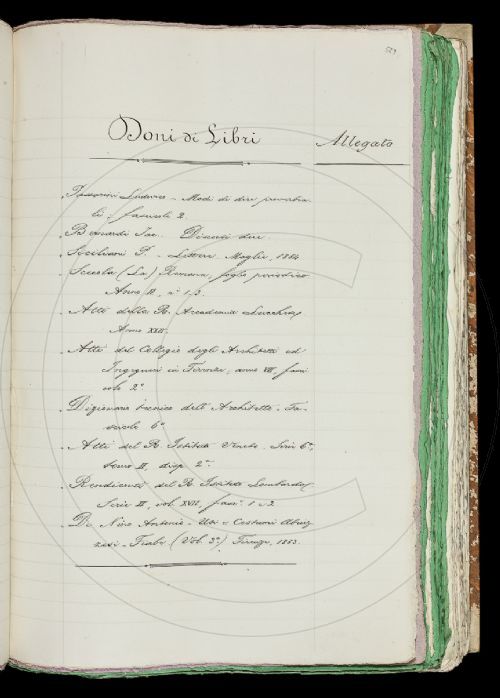 Doni di Libri
Allegato
Passarini Ludovico - Modi di dire proverbia
li - fascicoli 2.
Bernardi Jac. Discorsi due.
Siciliani P. - Lettere. Maglie, 1884
Scuola (La) Romana, foglio periodico
Anno II, n. 1. 3.
Atti della R. Accademia Lucchese
Anno XXII.
Atti del Collegio degli Architetti ed
Ingegneri in Firenze, anno VII, fasci
colo 2º
Dizionario tecnico dell'Architetto - Fa-
scicolo 6º
Atti del R. Istituto Veneto. Serie 6ª,
tomo II, disp. 2ª.
Rendiconti del R. Istituto Lombardo,
Serie II, vol. XVII, fasc. 1 e 2
De Nino Antonio - Usi e Costumi Abruz
zesi - Fiabe. (Vol. 3º) Firenze, 1883.